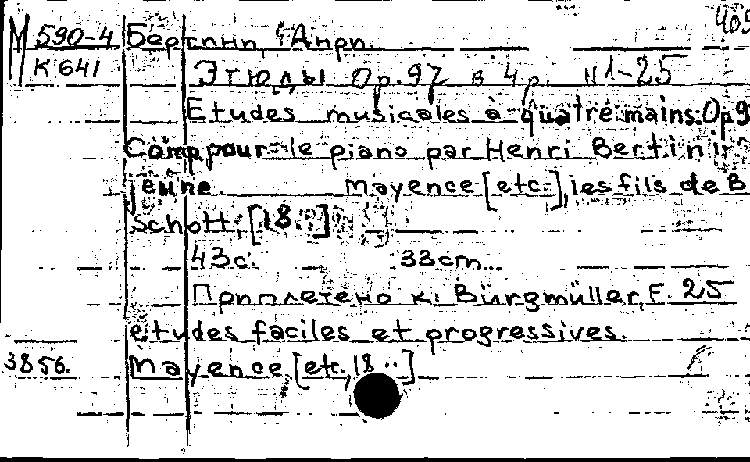 405
М 590-4 Бертини, Анри.
К 641 Этюды Op. 97 в 4 р. N 1-25
Etudes musicales à quatre mains. Op 9
Comp. pour le piano par Henri Bertini
jeune. Mayence [etc.], les fils de B
Schott, [18..]
43 с. 33 cm.
Приплетено к: Burgmüller, F. 25
etudes faciles et progressives.
3856. Mayence [etc., 18..]